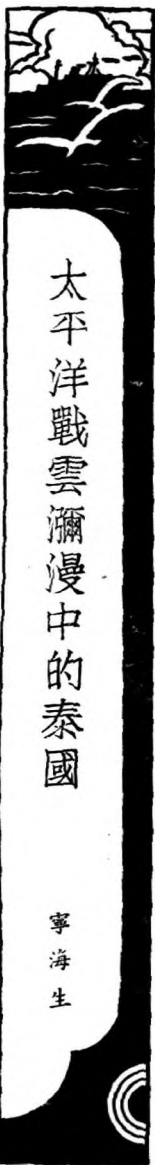 太平洋戰雲瀰漫中的泰國
寧海生